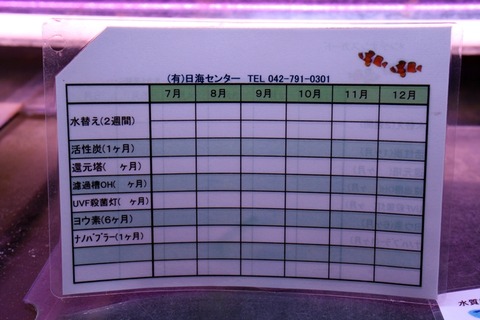 (有)日海センター TEL 042-791-0301
7月 8月 9月 10月 11月 12月
水替え(2週間)
活性炭(1ヶ月)
還元塔( ヶ月)
濾過槽OH( ヶ月)
UVF殺菌灯( ヶ月)
ヨウ素(6ヶ月)
ﾅﾉﾊﾞﾌﾞﾗｰ(1ヶ月)
水質